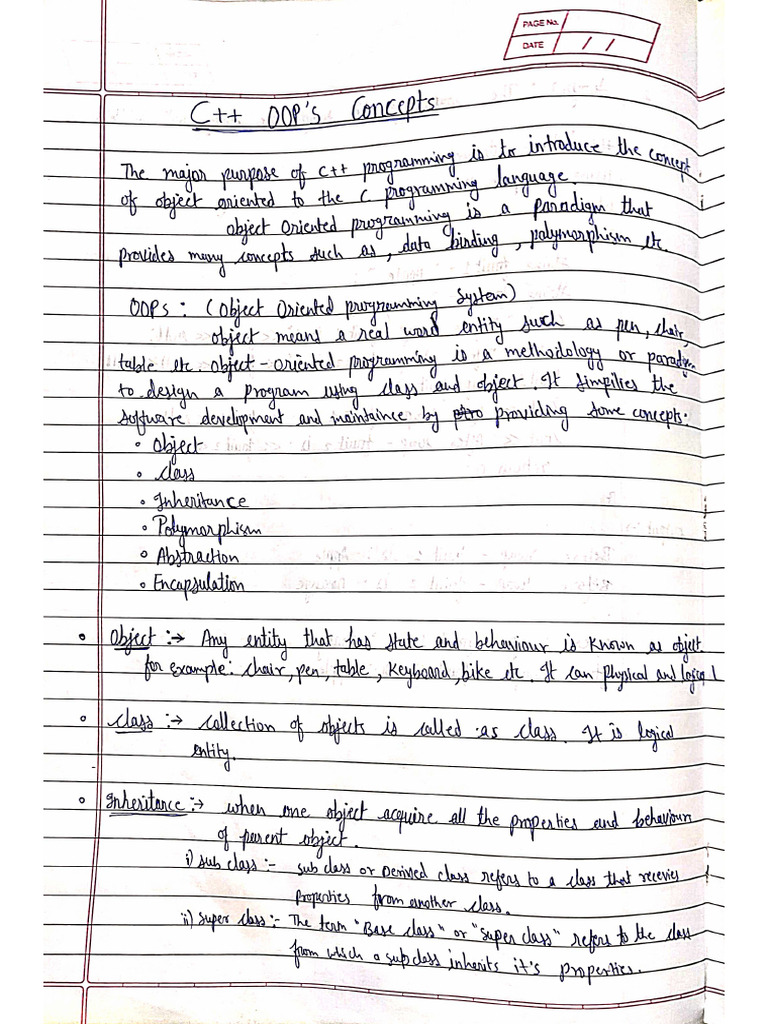 PAGE No.
DATE / /
C++ OOP's Concepts
The major purpose of C++ programming is to introduce the concept
of object oriented to the C programming language.
object Oriented programming is a paradigm that
provides many concepts such as, data binding, polymorphism etc.
OOPs : (Object Oriented programming System)
object means a real word entity such as pen, chair,
table etc. object-oriented programming is a methodology or paradigm
to design a program using class and object. It simplies the
software development and maintaince by providing some concepts:
• Object
• Class
• Inheritance
• Polymorphism
• Abstraction
• Encapsulation
• Object :→ Any entity that has state and behaviour is known as object.
for example: chair, pen, table, Keyboard, bike etc. It can physical and logical
• Class :→ Collection of objects is called as class. It is logical
entity.
• Inheritance :→ when one object acquire all the properties and behaviour
of parent object.
i) sub class :- sub class or Derived class refers to a class that recevies
properties from another class.
ii) super class :- The term "Base class" or "super class" refers to the class
from which a subclass inherits it's properties.